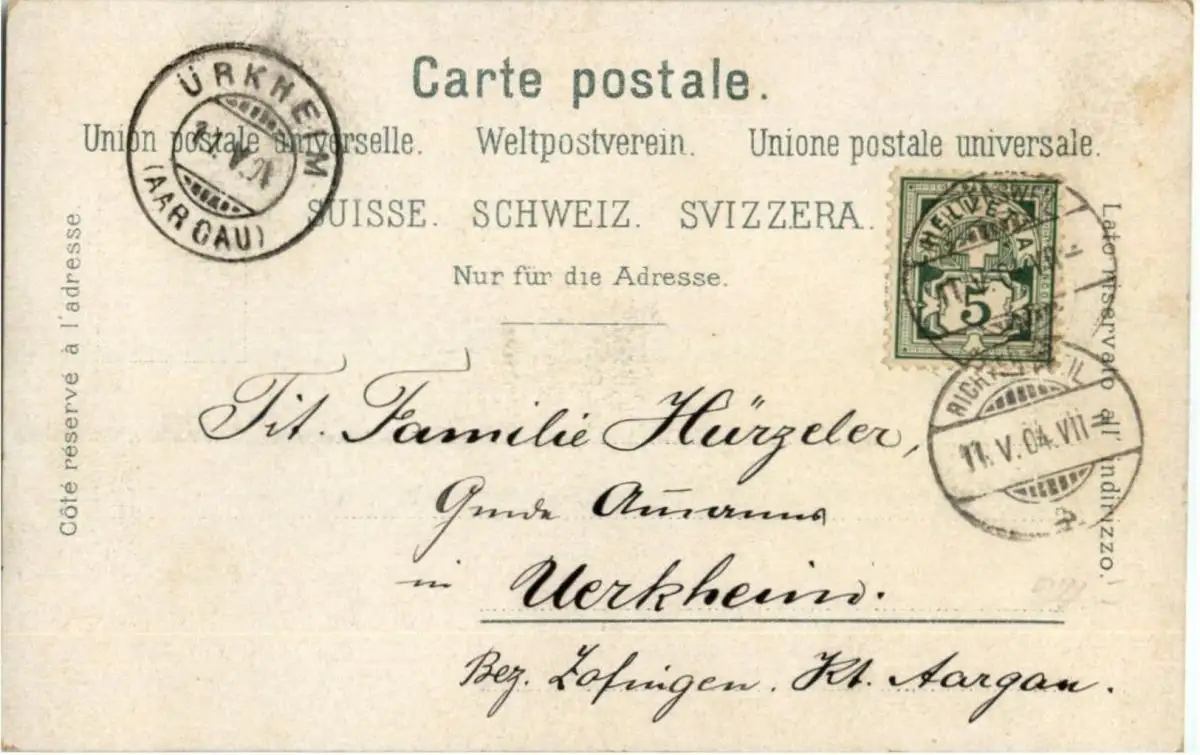 Carte postale.
Union postale universelle. Weltpostverein. Unione postale universale.
SUISSE. SCHWEIZ. SVIZZERA.
Nur für die Adresse.
Côté réservé à l'adresse.
Lato riservato all' indirizzo.
ÜRKHEIM
(AARGAU)
HELVETIA
5
11. V. 04. VII
Tit. Familie Hürzeler,
Gmde Ammanns
in Uerkheim.
Bez. Zofingen. Kt. Aargau.